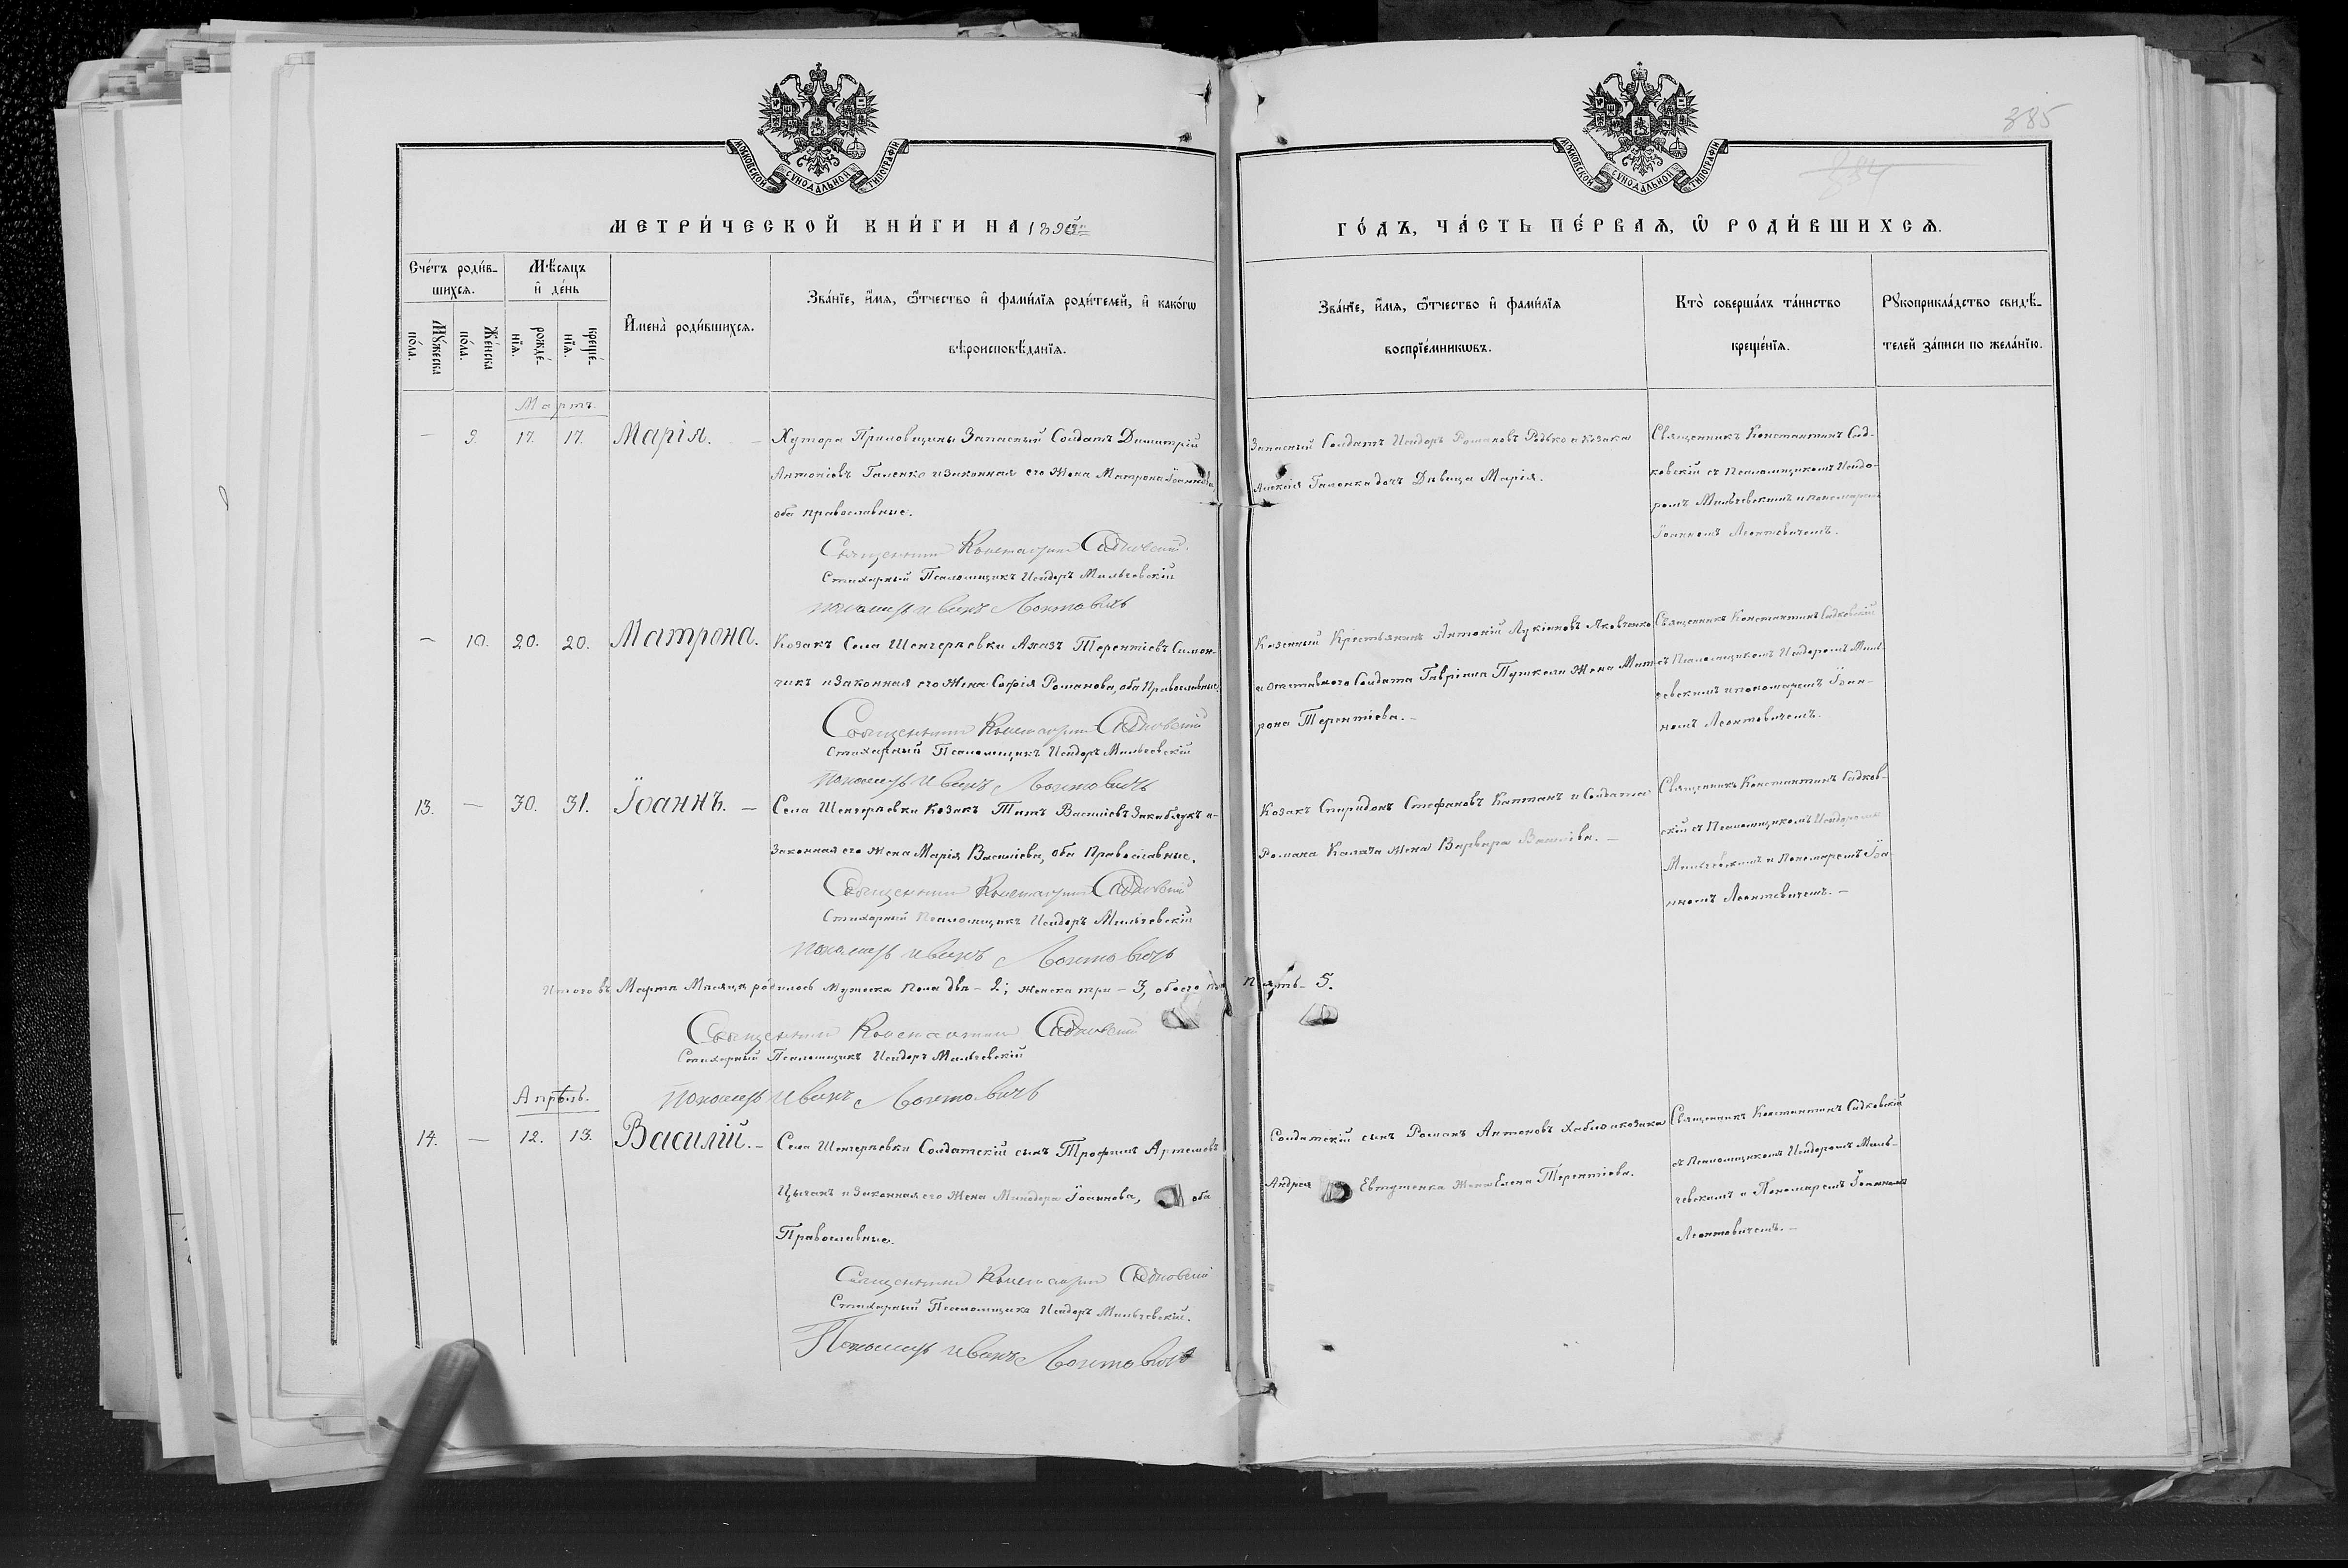 885
884
МОСКОВСКОЙ СѴНОДАЛЬНОЙ ТИПОГРАФІИ
МОСКОВСКОЙ СѴНОДАЛЬНОЙ ТИПОГРАФІИ
МЕТРИ́ЧЕСКОЙ КНИ́ГИ НА 189
ГО́ДЪ, ЧА́СТЬ ПЕ́РВАѦ, Ѡ РОДИ́ВШИХСѦ.
Счéтъ роди́в-
шихсѧ.
Мꙋ́жеска
по́ла.
Же́нска
по́ла.
Мѣ́сѧцъ
и҆ де́нь
рожде́-
нїѧ.
креще́-
нїѧ.
И҆мена̀ роди́вшихсѧ.
Зва́нїе, и҆́мѧ, ѻ҆́тчество и҆ фами́лїѧ роди́телей, и҆ како́гѡ
вѣроисповѣ́данїѧ.
Зва́нїе, и҆́мѧ, ѻ҆́тчество и҆ фами́лїѧ
воспрїе́мникѡвъ.
Кто̀ соверша́лъ та́инство
креще́нїѧ.
Рꙋкоприкла́дство свидѣ́-
телей за́писи по жела́нїю.
Мартъ.
— 9. 17. 17. Марія. —
Хутора Запасный Солдатъ Димитрій
Антоніевъ Галенко и законная его Жена Матрона Іоаннова,
оба православные.
Священникъ Константинъ Садковскій.
Стихарный Псаломщикъ Исидоръ Мильчевскій
пономарь Иванъ Леонтовичъ
Запасный Солдатъ Исидоръ Романовъ Редько и козака
Алексія Галенка дочь Дѣвица Марія.
Священникъ Константинъ Сад-
ковскій съ Псаломщикомъ Исидо-
ромъ Мильчевскимъ и пономаремъ
Іоанномъ Леонтовичемъ.
— 10. 20. 20. Матрона.
Козакъ Села Шенгерѣевки Терентіевъ Симон-
чикъ и законная его Жена Софія Романова, оба Православные.
Священникъ Константинъ Садковскій
Стихарный Псаломщикъ Исидоръ Мильчевскій
пономарь Иванъ Леонтовичъ
Казенный Крестьянинъ Антоній Лукіановъ Яковченко
и отставного Солдата Гавріила Пушкаля Жена Мат-
рона Терентіева. —
Священникъ Константинъ Садковскій
съ Псаломщикомъ Исидоромъ Миль-
чевскимъ и пономаремъ Іоан-
номъ Леонтовичемъ.
13. — 30. 31. Іоаннъ. —
Села Шенгерѣевки Козакъ Титъ Василіевъ Закаблукъ и-
Законная его Жена Марія Василіева, оба Православные.
Священникъ Константинъ Садковскій
Стихарный Псаломщикъ Исидоръ Мильчевскій
пономарь Иванъ Леонтовичъ
Козакъ Спиридонъ Стефановъ Каптанъ и Солдата
Романа Калача жена Варвара Василіева. —
Священникъ Константинъ Садков-
скій съ Псаломщикомъ Исидоромъ
Мильчевскимъ и Пономаремъ Іоа-
нномъ Леонтовичемъ. —
Итого въ Мартѣ Мѣсяцѣ родилось Мужеска Пола два — 2; Женска три — 3, обоего пола пять — 5.
Священникъ Константинъ Садковскій
Стихарный Псаломщикъ Исидоръ Мильчевскій
пономарь Иванъ Леонтовичъ
Апрѣль.
14. — 12. 13. Василій. —
Села Шенгерѣевки Солдатскій сынъ Трофимъ Артемовъ
Цыганъ и Законная его Жена Минодора Іоаннова, оба
Православные.
Священникъ Константинъ Садковскій
Стихарный Псаломщикъ Исидоръ Мильчевскій.
Пономарь Иванъ Леонтовичъ
Солдатскій сынъ Романъ Антоновъ Хабло и козака
Андрея Евтушенка Жена Елена Терентіева.
Священникъ Константинъ Садковскій
съ Псаломщикомъ Исидоромъ Миль-
чевскимъ и Пономаремъ Іоанномъ
Леонтовичемъ. —